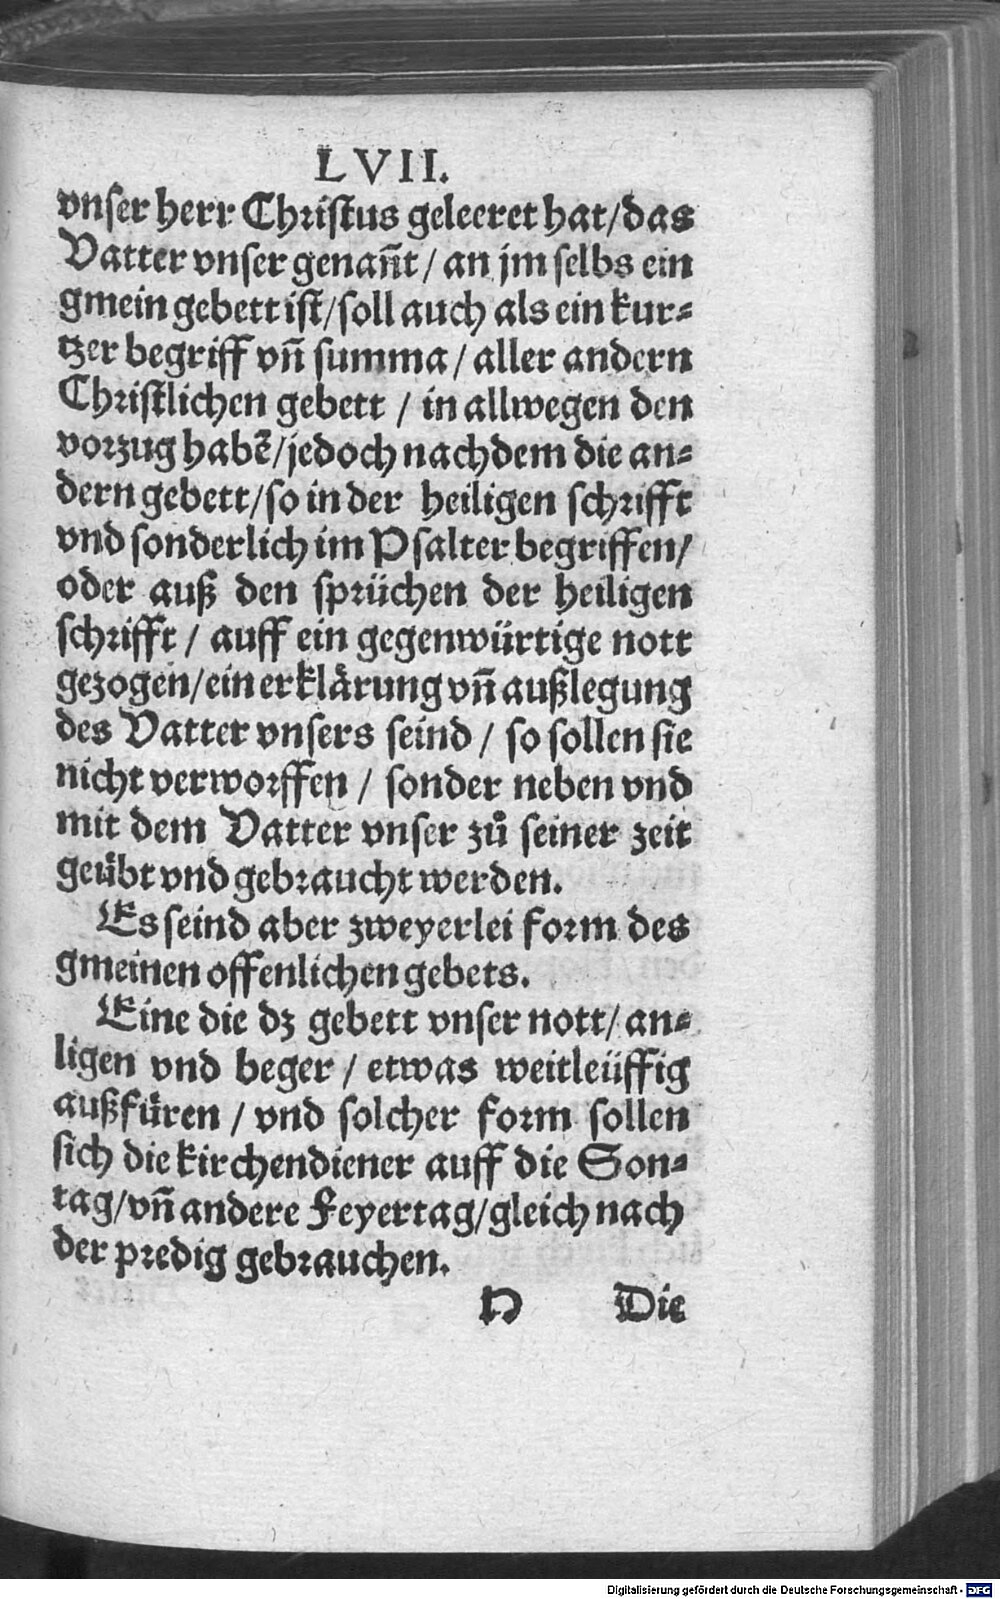 LVII.
vnser herr Christus geleeret hat/das
Vatter vnser genañt/an jm selbs ein
gmein gebett ist/soll auch als ein kur⸗
tzer begriff vñ summa/aller andern
Christlichen gebett/in allwegen den
vorzug habē/jedoch nachdem die an⸗
dern gebett/so in der heiligen schrifft
vnd sonderlich im Psalter begriffen/
oder auß den sprüchen der heiligen
schrifft/auff ein gegenwürtige nott
gezogen/ein erklärung vñ außlegung
des Vatter vnsers seind/so sollen sie
nicht verworffen/sonder neben vnd
mit dem Vatter vnser zů seiner zeit
geübt vnd gebraucht werden.
Es seind aber zweyerlei form des
gmeinen offenlichen gebets.
Eine die dz gebett vnser nott/an⸗
ligen vnd beger/etwas weitleüffig
außfüren/vnd solcher form sollen
sich die kirchendiener auff die Son⸗
tag/vñ andere Feyertag/gleich nach
der predig gebrauchen.
Die
Digitalisierung gefördert durch die Deutsche Forschungsgemeinschaft - DFG